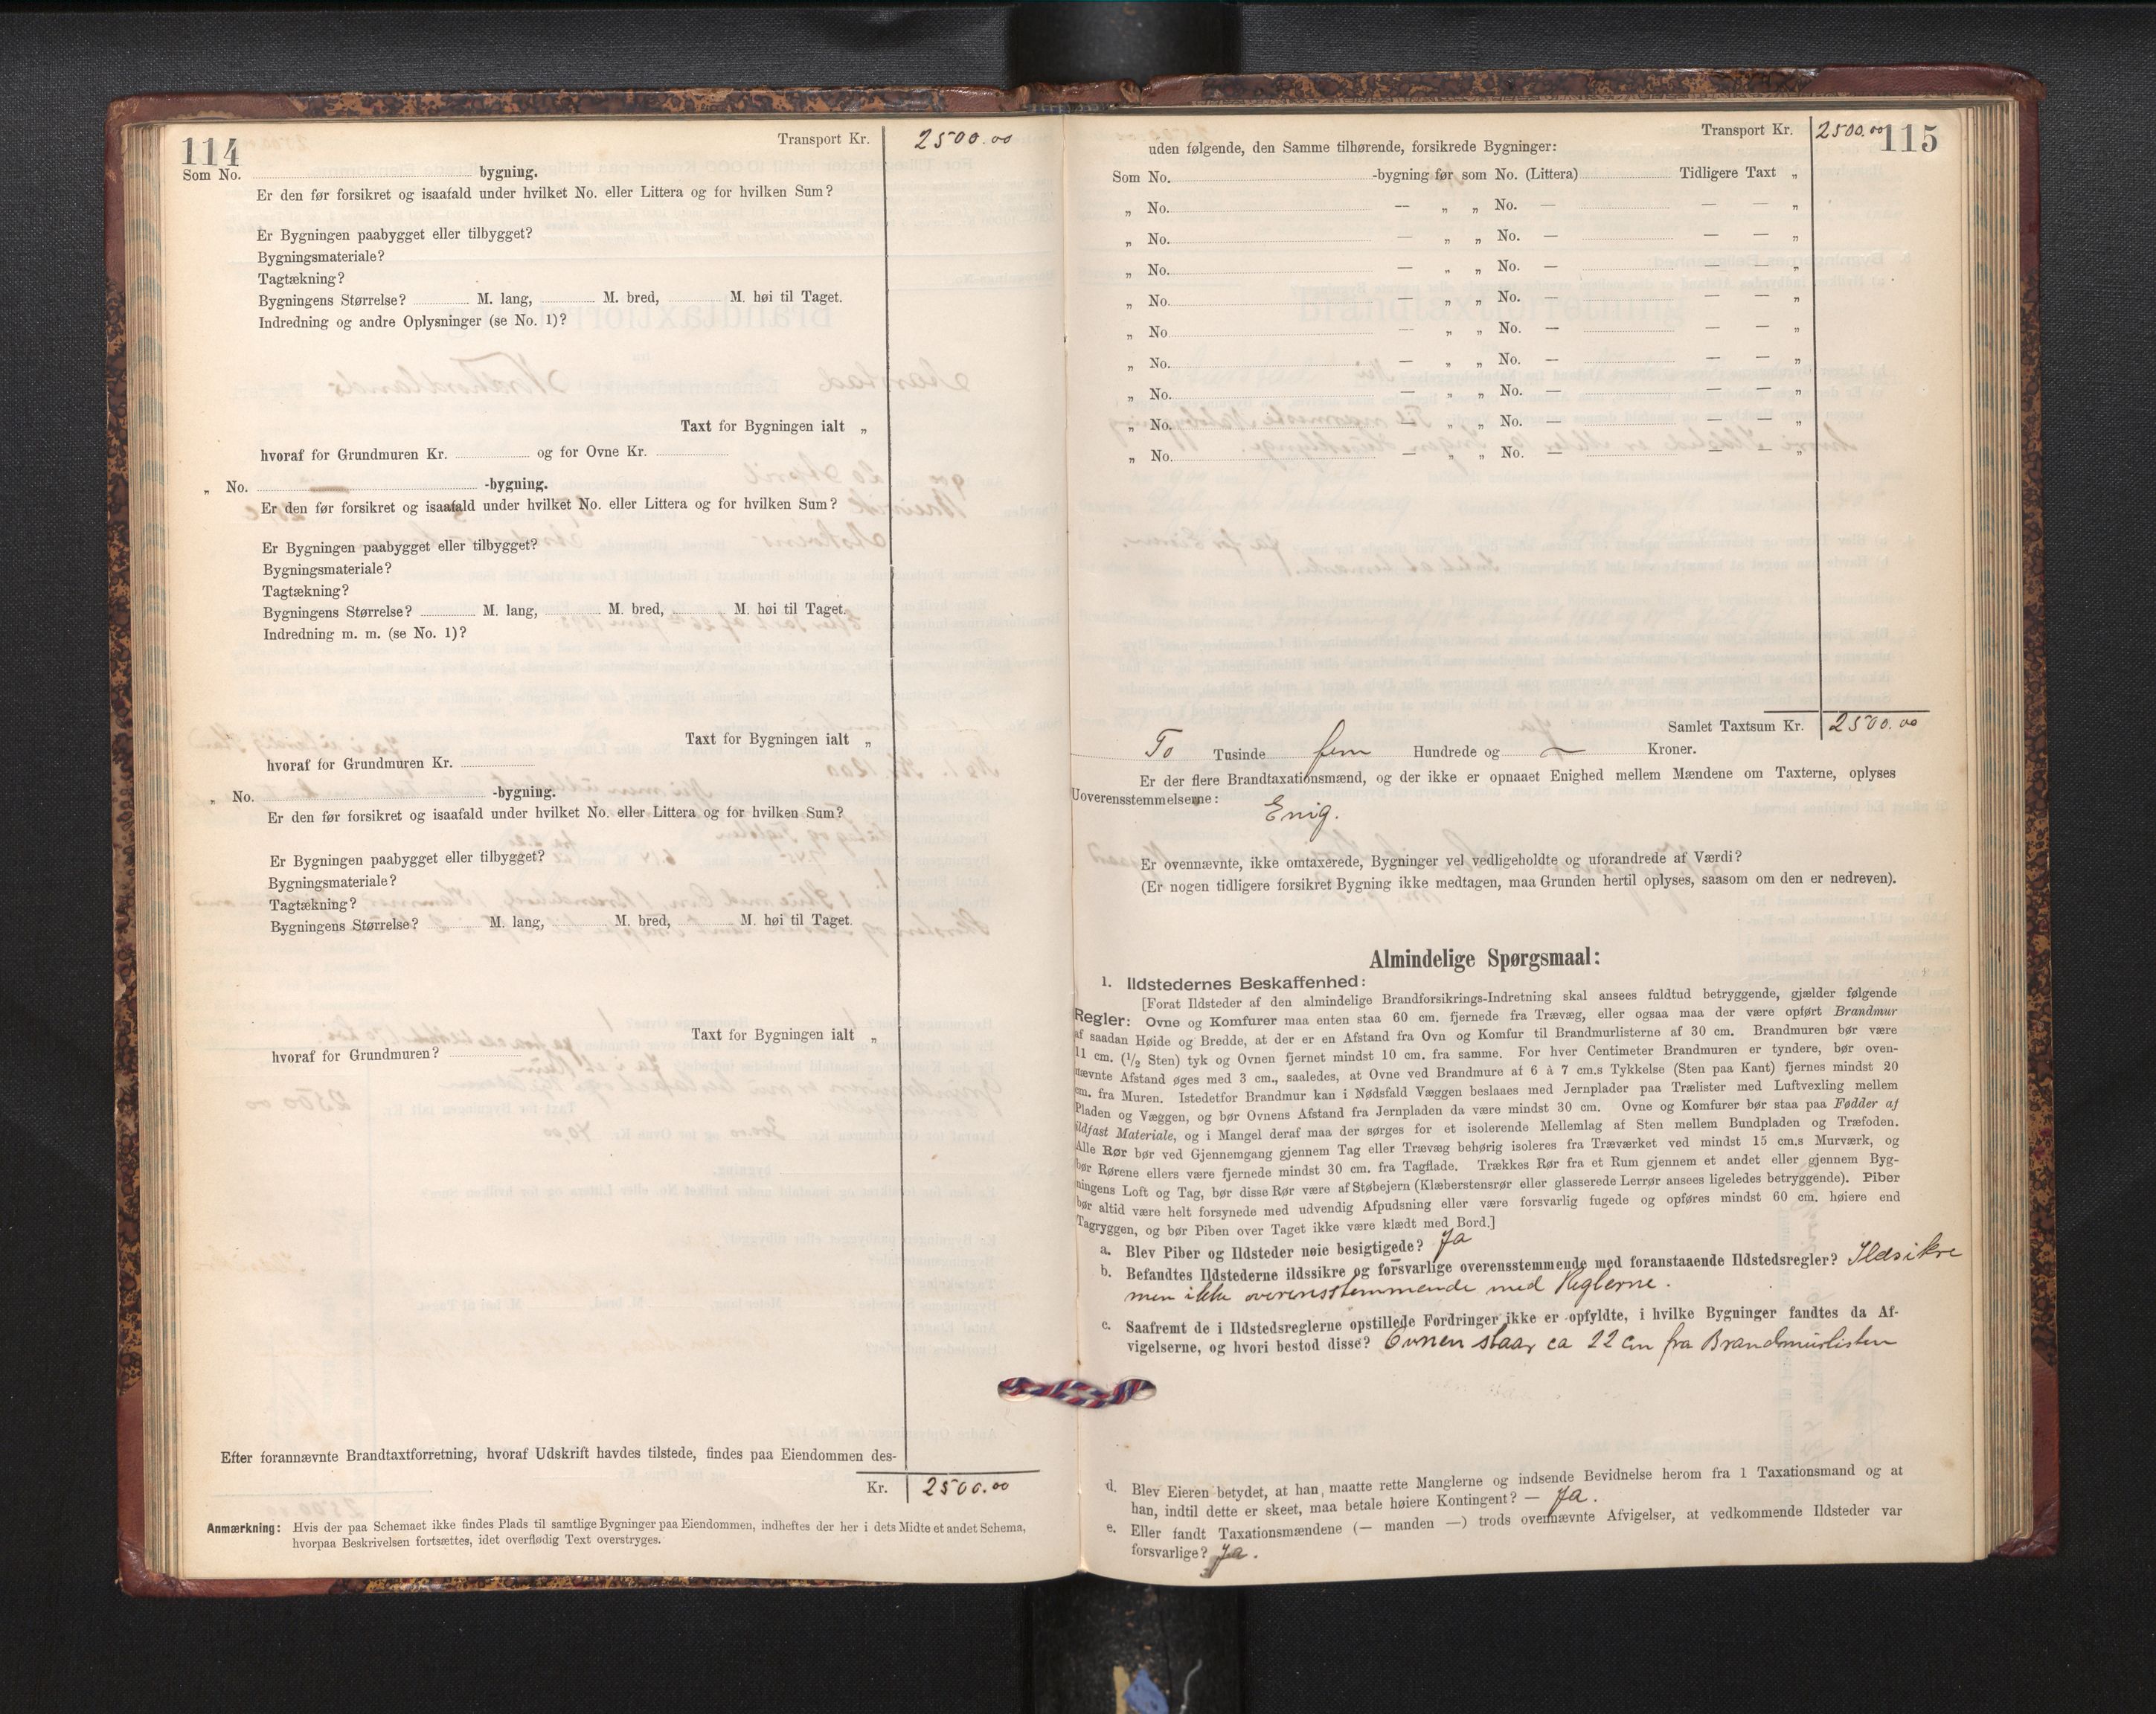 114
Transport Kr. 2500.00
Som No. bygning.
Er den før forsikret og isaafald under hvilket No. eller Littera og for hvilken Sum?
Er Bygningen paabygget eller tilbygget?
Bygningsmateriale?
Tagtækning?
Bygningens Størrelse? M. lang, M. bred, M. høi til Taget.
Indredning og andre Oplysninger (se No. 1)?
Taxt for Bygningen ialt „
hvoraf for Grundmuren Kr. og for Ovne Kr.
„ No. -bygning.
Er den før forsikret og isaafald under hvilket No. eller Littera og for hvilken Sum?
Er Bygningen paabygget eller tilbygget?
Bygningsmateriale?
Tagtækning?
Bygningens Størrelse? M. lang, M. bred, M. høi til Taget.
Indredning m. m. (se No. 1)?
Taxt for Bygningen ialt „
hvoraf for Grundmuren Kr.
„ No. -bygning.
Er den før forsikret og isaafald under hvilket No. eller Littera og for hvilken Sum?
Er Bygningen paabygget eller tilbygget?
Bygningsmateriale?
Tagtækning?
Bygningens Størrelse? M. lang, M. bred, M. høi til Taget.
Taxt for Bygningen ialt „
hvoraf for Grundmuren?
Efter forannævnte Brandtaxtforretning, hvoraf Udskrift havdes tilstede, findes paa Eiendommen des-
Kr. 2500.00
Anmærkning: Hvis der paa Schemaet ikke findes Plads til samtlige Bygninger paa Eiendommen, indheftes der her i dets Midte et andet Schema,
hvorpaa Beskrivelsen fortsættes, idet overflødig Text overstryges.
Transport Kr. 2500.00
115
uden følgende, den Samme tilhørende, forsikrede Bygninger:
Som No. -bygning før som No. (Littera) Tidligere Taxt „
„ No. — „ „ No. — — — „
„ No. — „ „ No. — — — „
„ No. — „ „ No. — — — „
„ No. — „ „ No. — — — „
„ No — „ „ No. — — — „
„ No. — „ „ No. — — — „
„ No. — „ „ No. — — — „
„ No. — „ „ No. — — — „
„ No. — „ „ No. — — — „
Samlet Taxtsum Kr. 2500.00
To Tusinde fem Hundrede og — Kroner.
Er der flere Brandtaxationsmænd, og der ikke er opnaaet Enighed mellem Mændene om Taxterne, oplyses
Uoverensstemmelserne:
Enig.
Er ovennævnte, ikke omtaxerede, Bygninger vel vedligeholdte og uforandrede af Værdi?
(Er nogen tidligere forsikret Bygning ikke medtagen, maa Grunden hertil oplyses, saasom om den er nedreven).
Almindelige Spørgsmaal:
1. Ildstedernes Beskaffenhed:
[Forat Ildsteder af den almindelige Brandforsikrings-Indretning skal ansees fuldtud betryggende, gjælder følgende
Regler: Ovne og Komfurer maa enten staa 60 cm. fjernede fra Trævæg, eller ogsaa maa der være opført Brandmur
af saadan Høide og Bredde, at der er en Afstand fra Ovn og Komfur til Brandmurlisterne af 30 cm. Brandmuren bør være
11 cm. (1/2 Sten) tyk og Ovnen fjernet mindst 10 cm. fra samme. For hver Centimeter Brandmuren er tyndere, bør oven-
nævnte Afstand øges med 3 cm., saaledes, at Ovne ved Brandmure af 6 à 7 cm.s Tykkelse (Sten paa Kant) fjernes mindst 20
cm. fra Muren. Istedetfor Brandmur kan i Nødsfald Væggen beslaaes med Jernplader paa Trælister med Luftvexling mellem
Pladen og Væggen, og bør Ovnens Afstand fra Jernpladen da være mindst 30 cm. Ovne og Komfurer bør staa paa Fødder af
ildfast Materiale, og i Mangel deraf maa der sørges for et isolerende Mellemlag af Sten mellem Bundpladen og Træfoden.
Alle Rør bør ved Gjennemgang gjennem Tag eller Trævæg behørig isoleres fra Træværket ved mindst 15 cm.s Murværk, og
bør Rørene ellers være fjernede mindst 30 cm. fra Tagflade. Trækkes Rør fra et Rum gjennem et andet eller gjennem Byg-
ningens Loft og Tag, bør disse Rør være af Støbejern (Klæberstensrør eller glasserede Lerrør ansees ligeledes betryggende). Piber
bør altid være helt forsynede med udvendig Afpudsning eller være forsvarlig fugede og opføres mindst 60 cm. høiere end
Tagryggen, og bør Piben over Taget ikke være klædt med Bord.]
a. Blev Piber og Ildsteder nøie besigtigede? Ja
b. Befandtes Ildstederne ildssikre og forsvarlige overensstemmende med foranstaaende Ildstedsregler? Ildsikre
men ikke overensstemmende med Reglerne.
c. Saafremt de i Ildstedsreglerne opstillede Fordringer ikke er opfyldte, i hvilke Bygninger fandtes da Af-
vigelserne, og hvori bestod disse? Ovnen staar ca 22 cm fra Brandmurlisten
d. Blev Eieren betydet, at han maatte rette Manglerne og indsende Bevidnelse herom fra 1 Taxationsmand og at
han, indtil dette er skeet, maa betale høiere Kontingent? — Ja.
e. Eller fandt Taxationsmændene (— manden —) trods ovennævnte Afvigelser, at vedkommende Ildsteder var
forsvarlige? Ja.